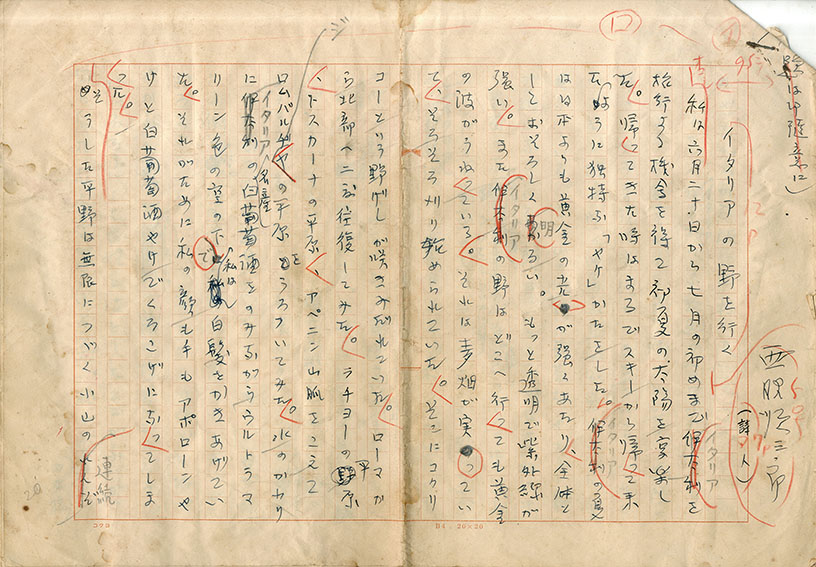 題は
イタリアの野を行く
西脇順三郎
(詩人)
私は六月二十日から七月の初めまで伊太利を
イタリア
旅行する機会を得て初夏の太陽を享楽し
た。帰ってきた時はまるでスキーから帰って来
たように独特な「ヤケ」かたをした。伊太利の夏
イタリア
は日本よりも黄金の光が強くあたり、全体と
しておそろしく明かるい。もっと透明で紫外線が
強い。また伊太利の野はどこへ行っても黄金
イタリア
の波がうねっている。それは麦畑が実ってい
て、そろそろ刈り始められていた。そこにコクリ
コーという野げしが咲きみだれていた。ローマか
ら北部へ二度往復してみた。ラチヨーの平原
、トスカーナの平原、アペニン山脈をこえて
ロムバルヂヤの平原をうろついてみた。水のかわり
ジ
にイタリア名産の白葡萄酒をのみながらウルトラマ
リーン色の空の下で私は白髪をかきあげてい
た。それがために私の顔も手もアポローンや
けと白葡萄酒やけでくろこげになってしま
った。
そうした平野は無限につづく小山の
連続
コクヨ
B4. 20×20